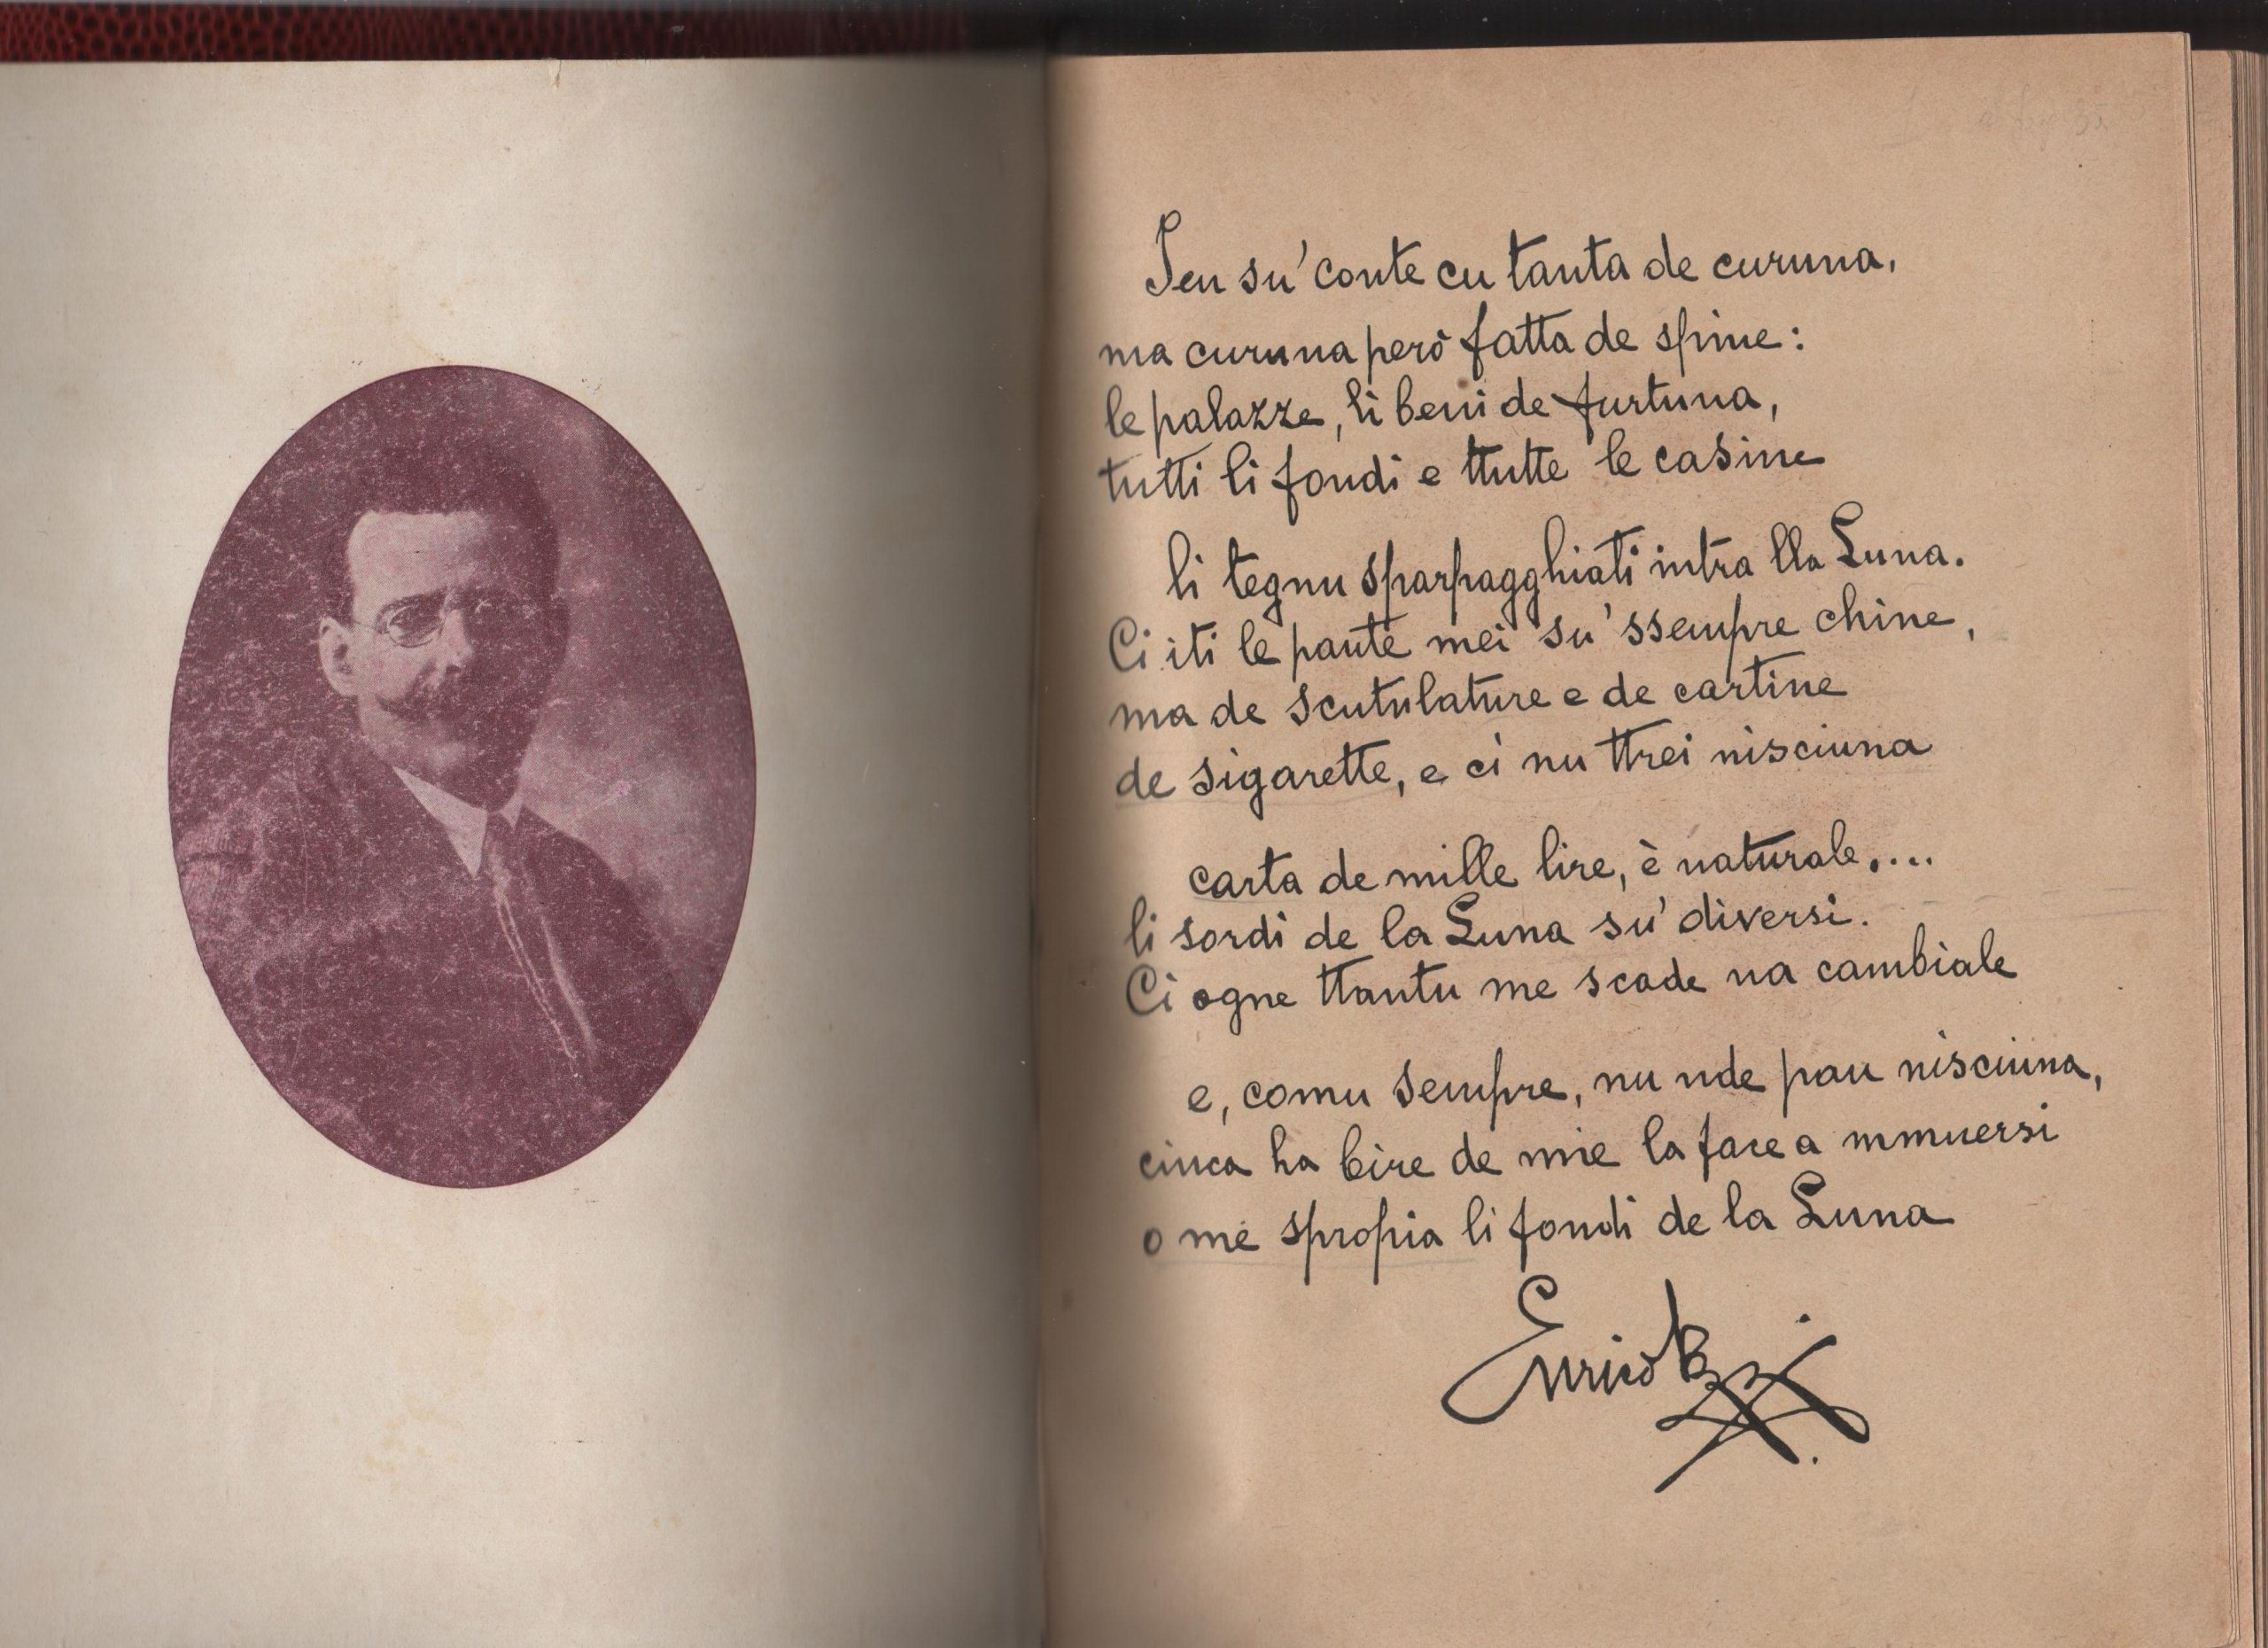 Jeu su' conte cu tanta de curuna,
ma curuna però fatta de spine:
le palazze, li beni de furtuna,
tutti li fondi e ttutte le casine
li tegnu sparpagghiati intra lla Luna.
Ci iti le pante mei su' ssempre chine,
ma de scutulature e de cartine
de sigarette, e ci nu ttrei nisciuna
carta de mille lire, è naturale....
li sordi de la Luna su' diversi.
Ci ogne ttantu me scade na cambiale
e, comu sempre, nu nde pau nisciuna,
cinca ha bire de mie la face a mmuersi
o me spropia li fondi de la Luna
Enrico Bozzi